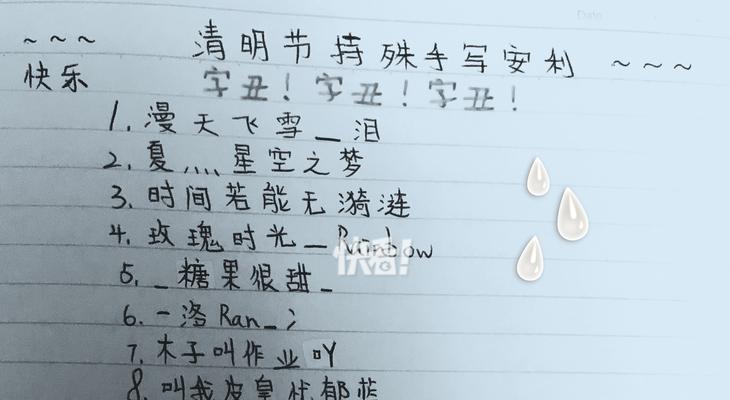 ~ ~ ~ 清明节特殊手写安利 ~ ~ ~
快乐 字丑! 字丑! 字丑!
1. 漫天飞雪_泪
2. 夏灬星空之梦
3. 时间若能无漪涟
4. 玫瑰时光_Rainbow
快看!
5. _糖果很甜_
6. 一洛Ran_;
7. 木子叫作业吖
8. 叫我皮皇